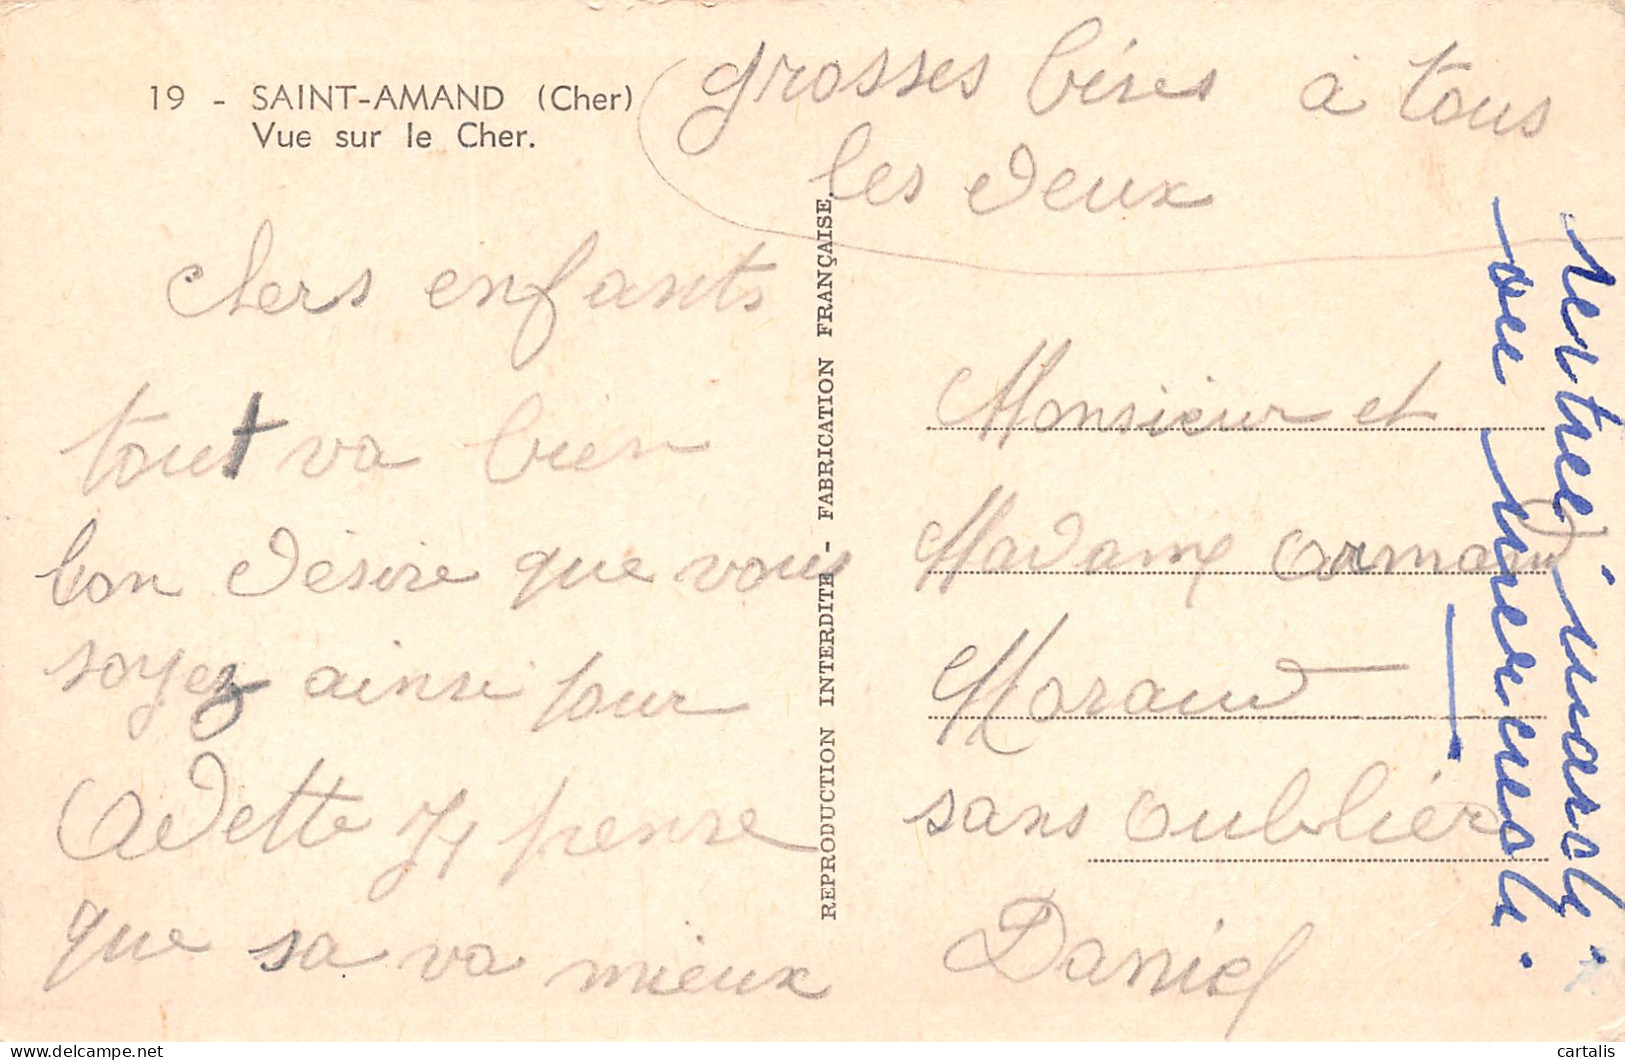 19 - SAINT-AMAND (Cher)
Vue sur le Cher.
grosses bises à tous
les deux
chers enfants
tout va bien
bon désire que vous
soyez ainsi pour
Odette Jy pense
que sa va mieux
REPRODUCTION INTERDITE - FABRICATION FRANÇAISE
Monsieur et
Madame armand
Moraud
sans oublier
Daniel
rentree mardi
ou mercredi.
cartalis